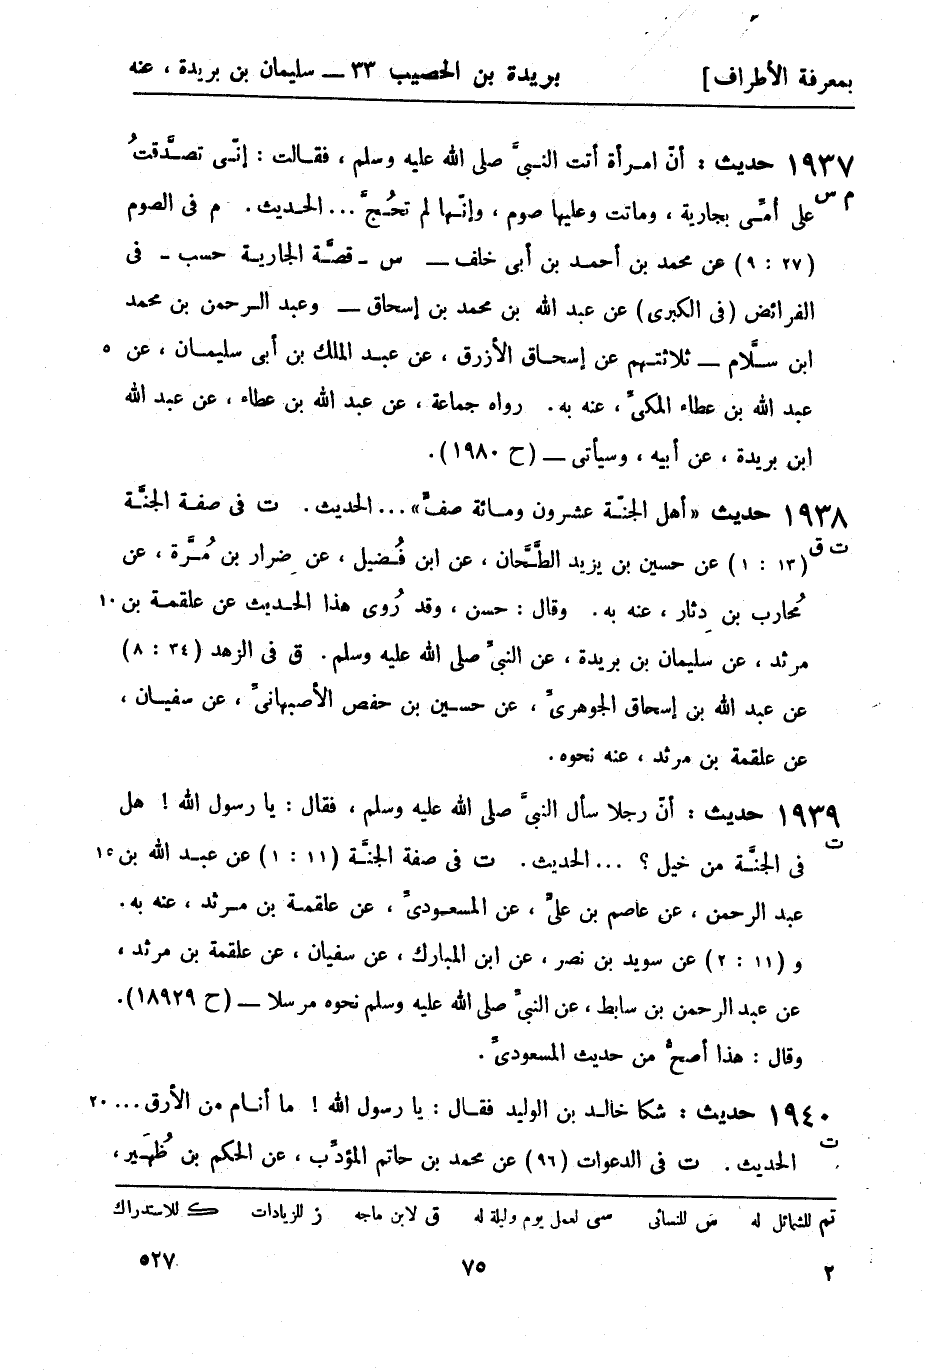 بمعرفة الأطراف] بريدة بن الحصيب ٣٣ ــ سليمان بن بريدة ، عنه
١٩٣٧ حديث : أنّ امرأة أتت النبىَّ صلى الله عليه وسلم ، فقالت : إنّى تصدَّقتُ
م س على أمّى بجارية ، وماتت وعليها صوم ، وإنّها لم تحُجَّ ... الحديث . م فى الصوم
(٢٧ : ٩) عن محمد بن أحمد بن أبى خلف ــ س ـ قصَّة الجارية حسب ـ فى
الفرائض (فى الكبرى) عن عبد الله بن محمد بن إسحاق ــ وعبد الرحمن بن محمد
ابن سلَّام ــ ثلاثتهم عن إسحاق الأزرق ، عن عبد الملك بن أبى سليمان ، عن ٥
عبد الله بن عطاء المكىّ ، عنه به . رواه جماعة ، عن عبد الله بن عطاء ، عن عبد الله
ابن بريدة ، عن أبيه ، وسيأتى ــ (ح ١٩٨٠) .
١٩٣٨ حديث «أهل الجنّة عشرون ومائة صفّ» ... الحديث . ت فى صفة الجنَّة
ت ق (١٣ : ١) عن حسين بن يزيد الطَّحَّان ، عن ابن فُضيل ، عن ضِرار بن مُرَّة ، عن
مُحارب بن دِثار ، عنه به . وقال : حسن ، وقد رُوى هذا الحديث عن علقمة بن ١٠
مرثد ، عن سليمان بن بريدة ، عن النبىّ صلى الله عليه وسلم . ق فى الزهد (٣٤ : ٨)
عن عبد الله بن إسحاق الجوهرىّ ، عن حسين بن حفص الأصبهانىّ ، عن سفيان ،
عن علقمة بن مرثد ، عنه نحوه .
١٩٣٩ حديث : أنّ رجلا سأل النبىَّ صلى الله عليه وسلم ، فقال : يا رسول الله ! هل
ت فى الجنَّة من خيل ؟ ... الحديث . ت فى صفة الجنَّة (١١ : ١) عن عبد الله بن ١٥
عبد الرحمن ، عن عاصم بن علىّ ، عن المسعودىّ ، عن علقمة بن مرثد ، عنه به .
و (١١ : ٢) عن سويد بن نصر ، عن ابن المبارك ، عن سفيان ، عن علقمة بن مرثد ،
عن عبد الرحمن بن سابط ، عن النبىّ صلى الله عليه وسلم نحوه مرسلا ــ (ح ١٨٩٢٩) .
وقال : هذا أصحّ من حديث المسعودىّ .
١٩٤٠ حديث : شكا خالد بن الوليد فقال : يا رسول الله ! ما أنام من الأرق ... ٢٠
ت الحديث . ت فى الدعوات (٩٦) عن محمد بن حاتم المؤدّب ، عن الحكم بن ظُهَير ،
تم للشمائل له س للنسائى سى لعمل يوم وليلة له ق لابن ماجه ز للزيادات ك للاستدراك
٢ ٧٥ ٥٢٧